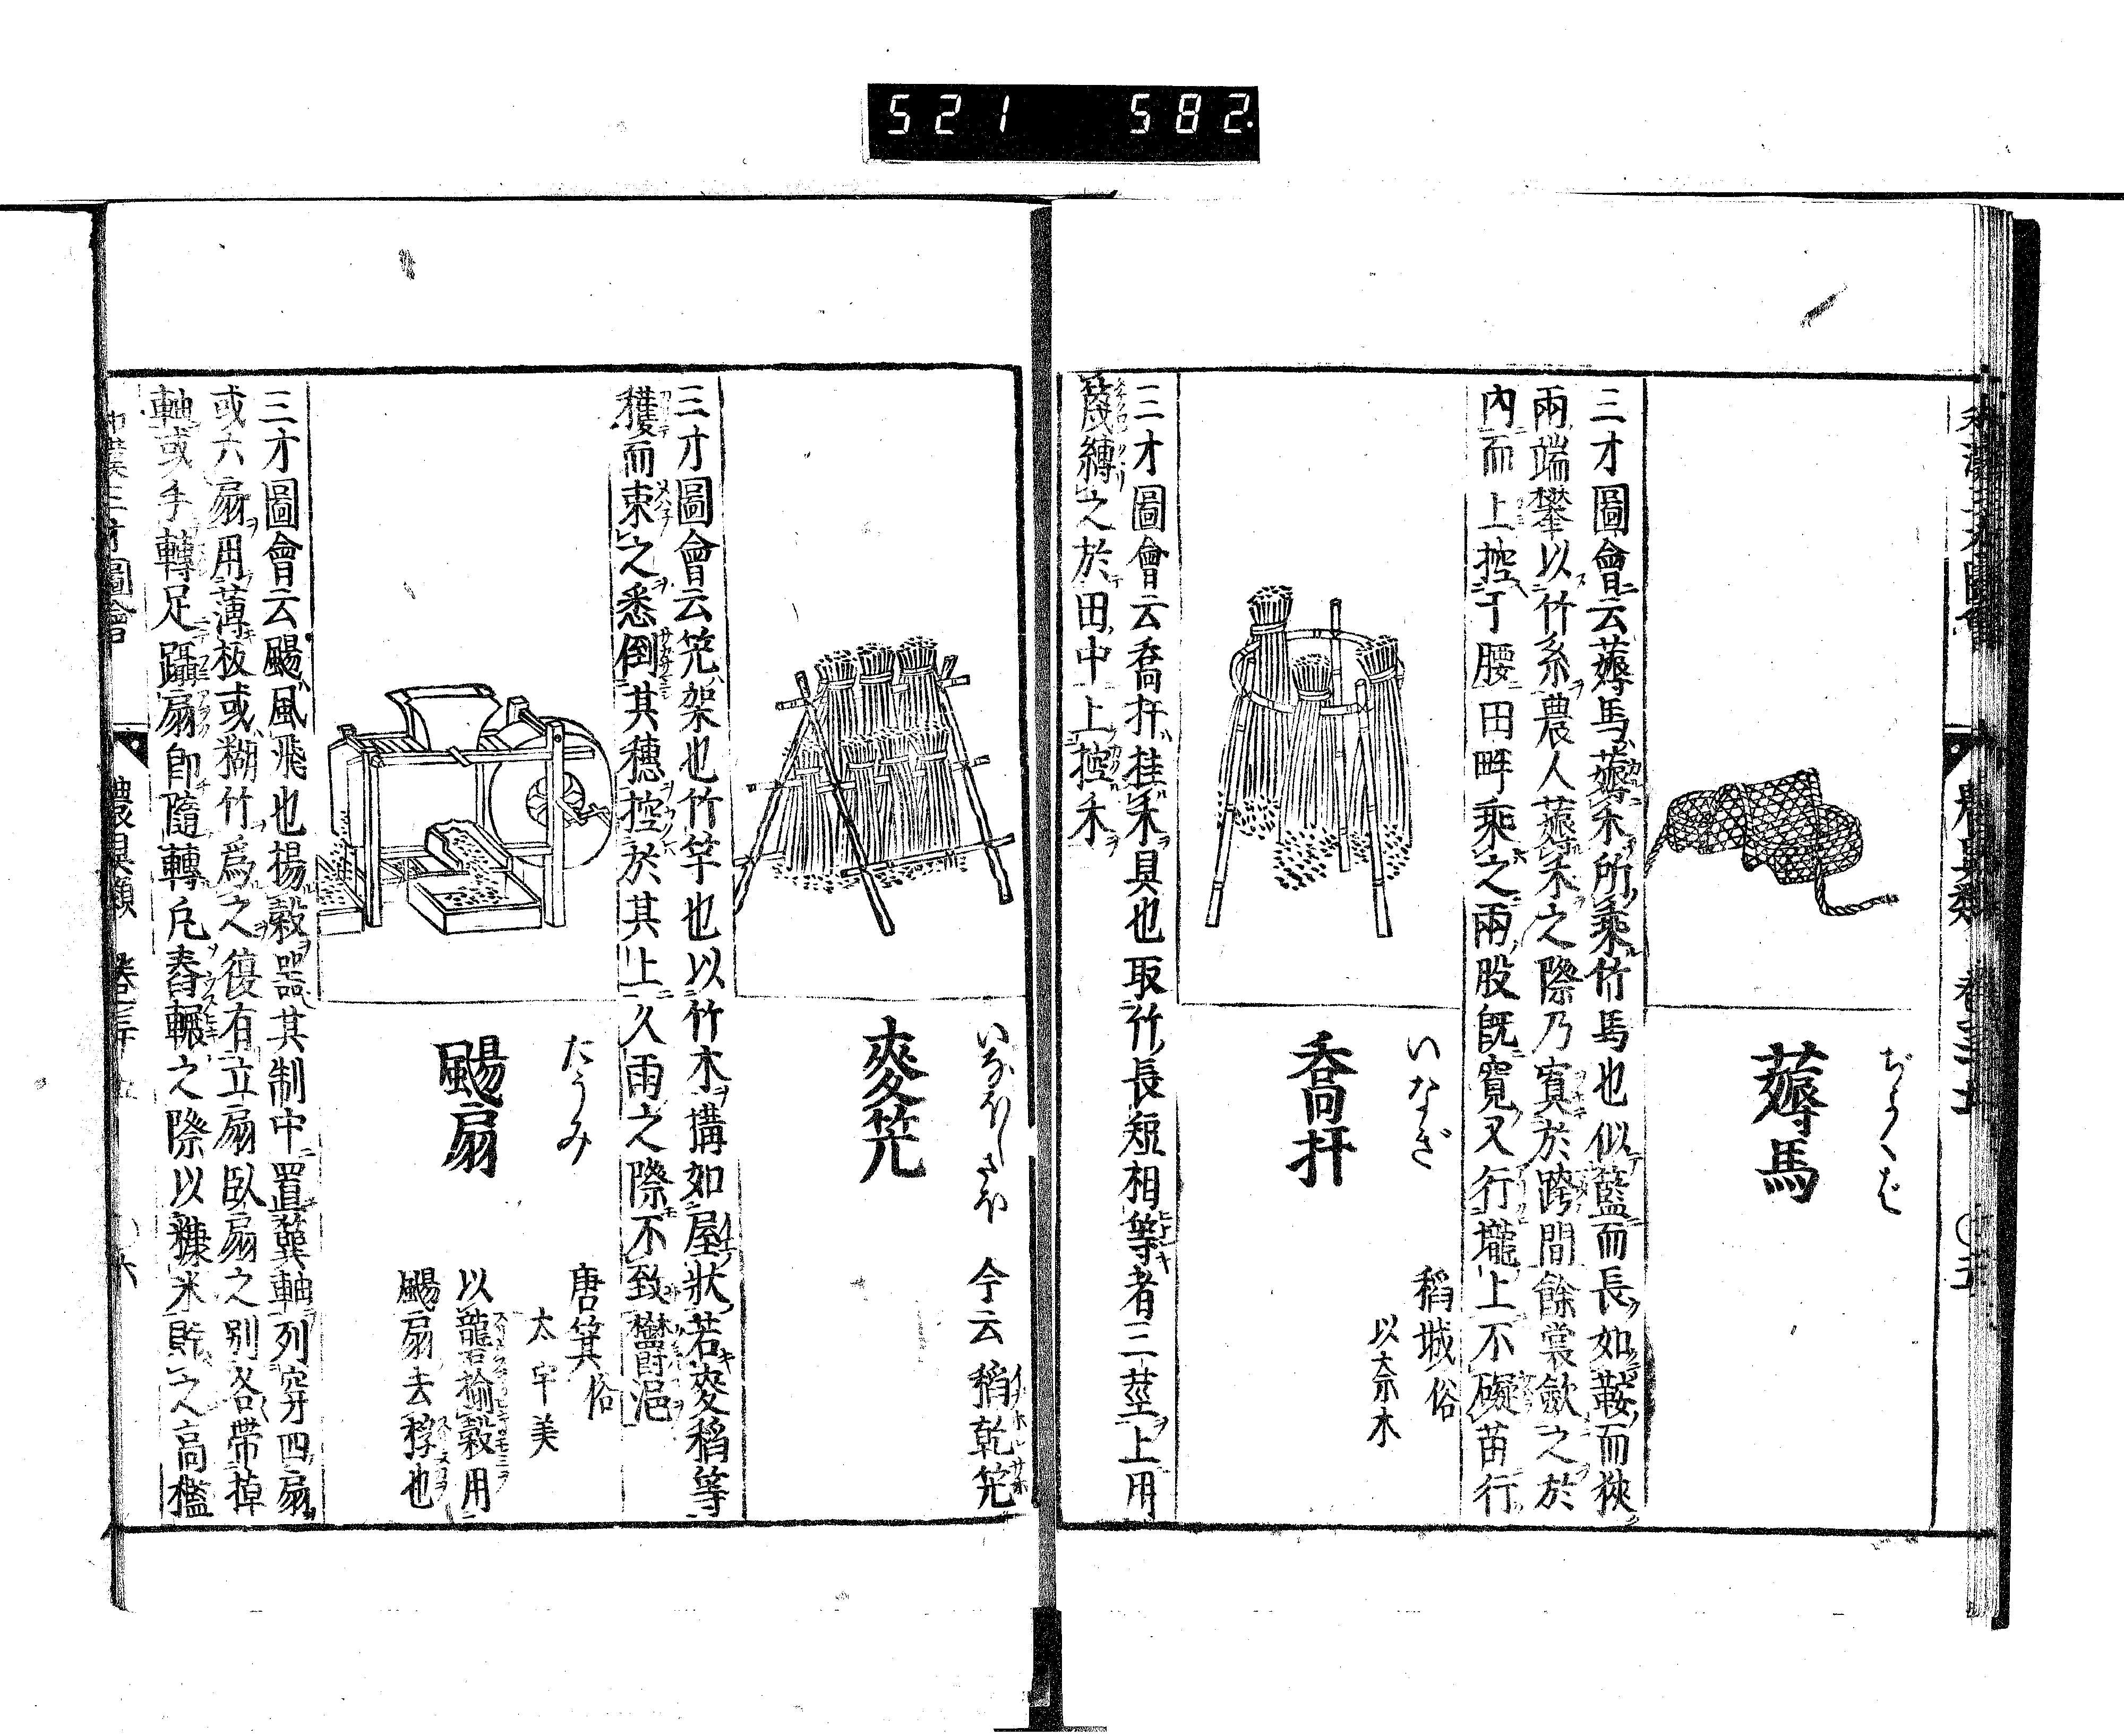 521 582.
和漢三才圖會 農具類 卷三十五 〇五
ぢよくば
薅馬
三才圖會云薅馬薅禾所乘竹馬也似籃而長如鞍而狹
兩端攀以竹系農人薅禾之際乃寘於跨間餘裳斂之於
內而上控于腰田畔乘之兩股旣寬又行壠上不礙苗行
いなぎ
稻城俗
以奈木
喬扞
三才圖會云喬扞挂禾具也取竹長短相等者三莖上用
篾縛之於田中上控禾
いなほしさほ 今云稻乾筦
麥筦
三才圖會云筦架也竹竿也以竹木搆如屋狀若麥稻等
穫而束之悉倒其穗控於其上久雨之際不致鬱浥
たうみ
唐箕俗
太宇美
颺扇
以礱磨揄穀用
颺扇去稃也
三才圖會云颺風飛也揚穀器其制中置簨軸列穿四扇
或六扇用薄板或糊竹爲之復有立扇臥扇之別各帶掉
軸或手轉足躡扇卽隨轉凡舂輾之際以糠米貯之高檻
和漢三才圖會 農具類 卷三十五 〇六